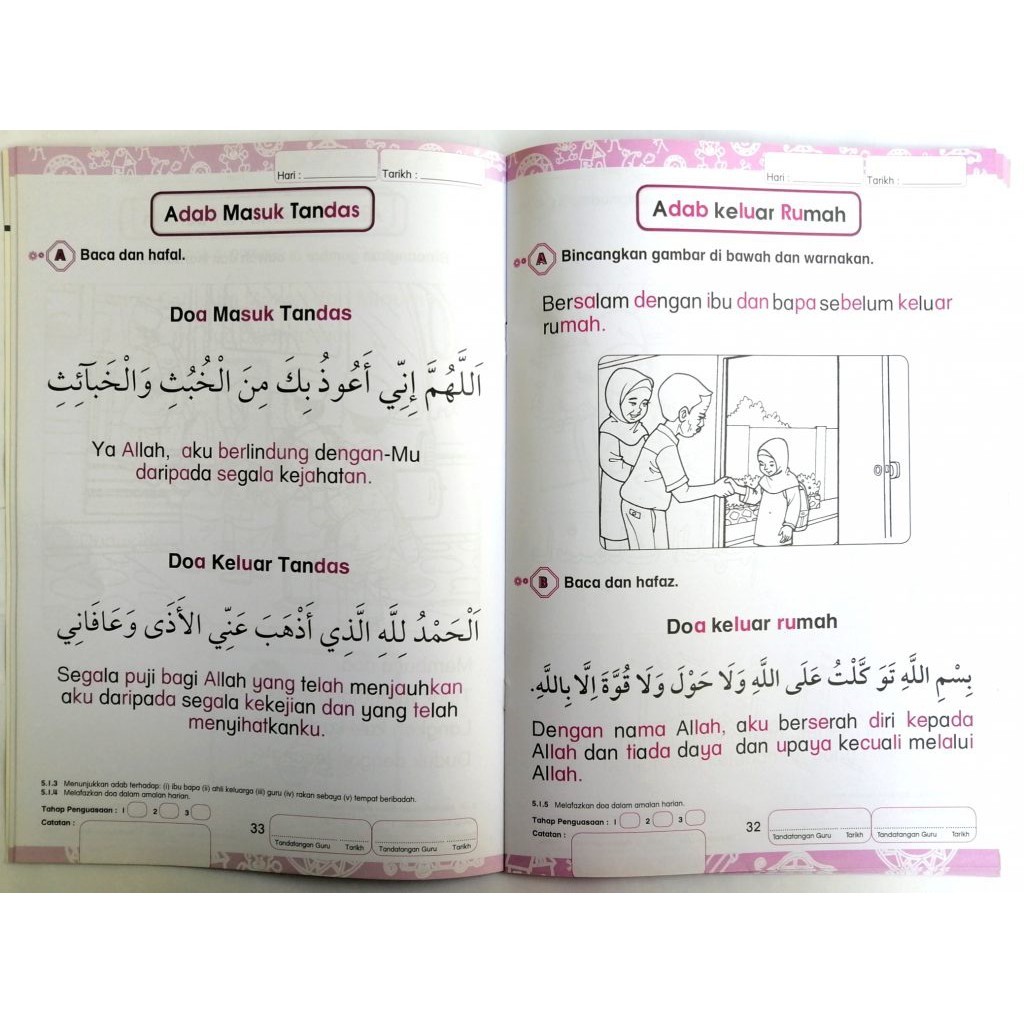 Hari : Tarikh :
Adab Masuk Tandas
A Baca dan hafal.
Doa Masuk Tandas
اَللَّهُمَّ إِنِّي أَعُوذُ بِكَ مِنَ الْخُبُثِ وَالْخَبَآئِثِ
Ya Allah, aku berlindung dengan-Mu
daripada segala kejahatan.
Doa Keluar Tandas
اَلْحَمْدُ لِلَّهِ الَّذِي أَذْهَبَ عَنِّي الأَذَى وَعَافَانِي
Segala puji bagi Allah yang telah menjauhkan
aku daripada segala kekejian dan yang telah
menyihatkanku.
5.1.3 Menunjukkan adab terhadap: (i) ibu bapa (ii) ahli keluarga (iii) guru (iv) rakan sebaya (v) tempat beribadah.
5.1.4 Melafazkan doa dalam amalan harian.
Tahap Penguasaan : 1 2 3
Catatan :
33
Tandatangan Guru Tarikh Tandatangan Guru Tarikh
Hari : Tarikh :
Adab keluar Rumah
A Bincangkan gambar di bawah dan warnakan.
Bersalam dengan ibu dan bapa sebelum keluar
rumah.
B Baca dan hafaz.
Doa keluar rumah
بِسْمِ اللَّهِ تَوَ كَّلْتُ عَلَى اللَّهِ وَلَا حَوْلَ وَلَا قُوَّةَ اِلَّا بِاللَّهِ.
Dengan nama Allah, aku berserah diri kepada
Allah dan tiada daya dan upaya kecuali melalui
Allah.
5.1.5 Melafazkan doa dalam amalan harian.
Tahap Penguasaan : 1 2 3
Catatan :
32
Tandatangan Guru Tarikh Tandatangan Guru Tarikh